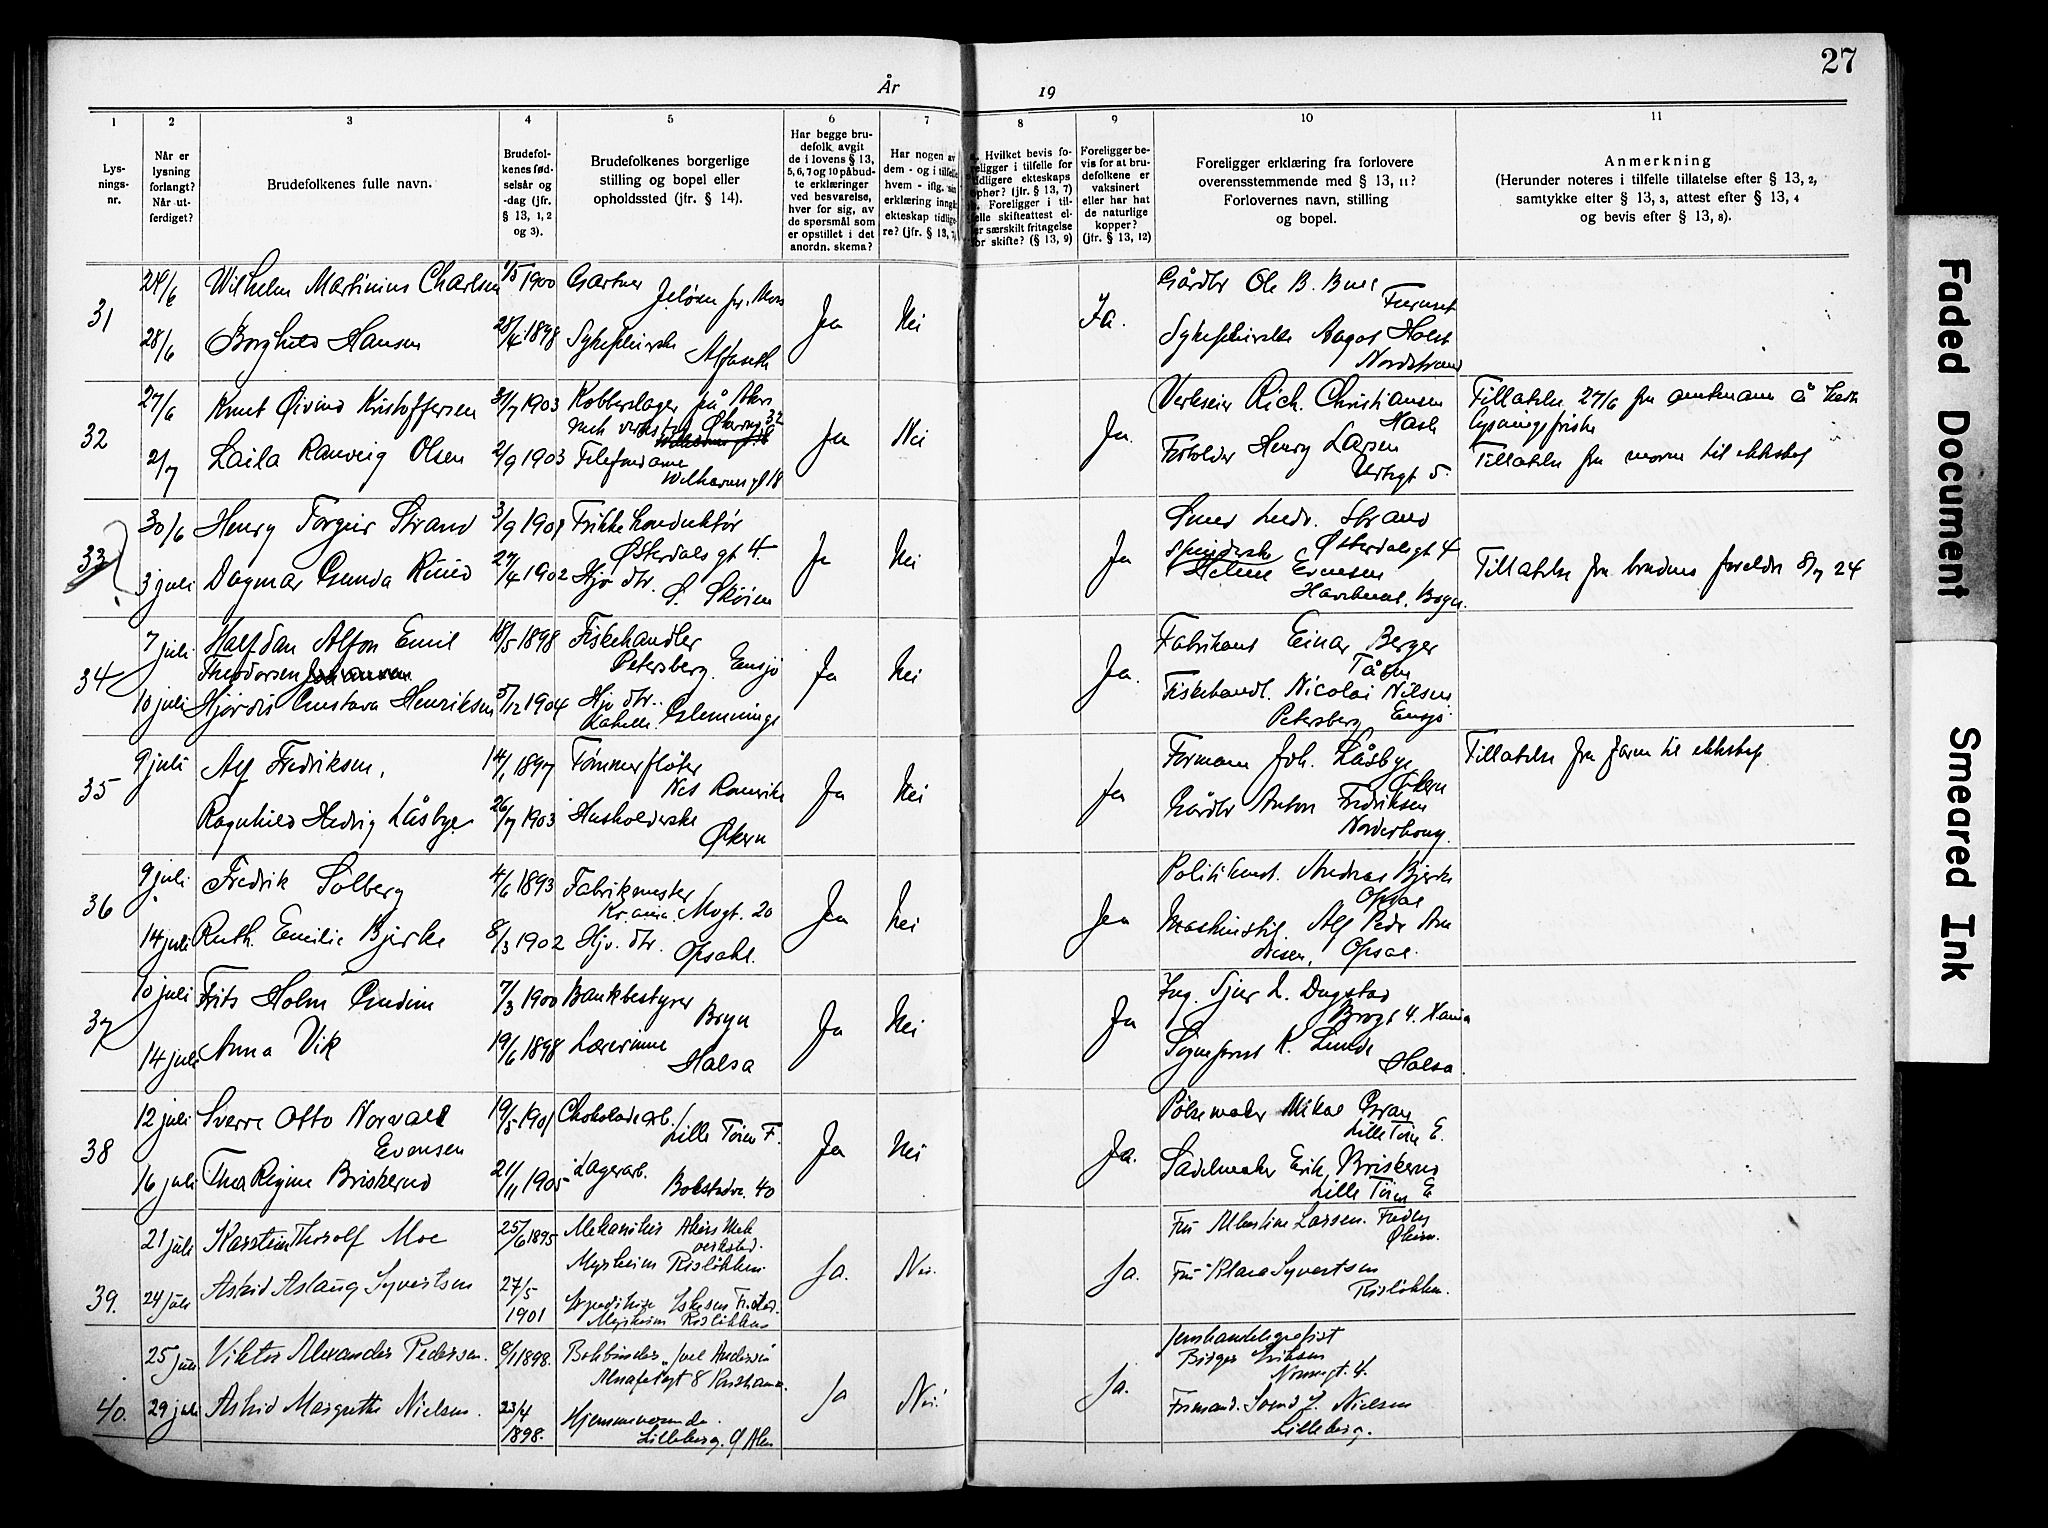 27
År
19
1
2
3
4
5
6
7
8
9
10
11
Lys-
nings-
nr.
Når er
lysning
forlangt?
Når ut-
ferdiget?
Brudefolkenes fulle navn.
Brudefol-
kenes fød-
selsår og
-dag (jfr.
§ 13, 1, 2
og 3).
Brudefolkenes borgerlige
stilling og bopel eller
opholdssted (jfr. § 14).
Har begge bru-
defolk avgit
de i lovens § 13,
5, 6, 7 og 10 påbud-
te erklæringer
ved besvarelse,
hver for sig, av
de spørsmål som
er opstillet i det
anordn. skema?
Har nogen av
dem - og i tilfelle
hvem - iflg. sin
erklæring inngått
ekteskap tidlige-
re? (jfr. § 13, 7)
Hvilket bevis fo-
religger i tilfelle for
tidligere ekteskaps
ophør? (jfr. § 13, 7)
Foreligger i til-
felle skifteattest el-
ler særskilt fritagelse
for skifte? (§ 13, 9)
Foreligger be-
vis for at bru-
defolkene er
vaksinert
eller har hat
de naturlige
kopper?
(jfr. § 13, 12)
Foreligger erklæring fra forlovere
overensstemmende med § 13, 11?
Forlovernes navn, stilling
og bopel.
Anmerkning
(Herunder noteres i tilfelle tillatelse efter § 13, 2,
samtykke efter § 13, 3, attest efter § 13, 4
og bevis efter § 13, 8).
31
24/6 Wilhelm Martinius Charlsen 1/5 1900 Gartner
Jeløen pr. Moss
28/6 Borghild Hansen 25/4 1898 Sykepleierske
Ja Nei Ja.
Gårdbr Ole B.
Furuset
Sykepleierske Aagot Holst
Nordstrand
32
27/6 Knut Øivind Kristoffersen 31/7 1903 Kobberslager på Akers
mek verksted Økernv 32
2/7 Laila Ranveig Olsen 2/9 1903 Telefondame
gt 18
Ja Nei Ja.
Verkseier Rich. Christiansen
Hasle
Forholder Henry Larsen
Urtegt 5.
Tillatelse 27/6 fra amtmann å
lysningsfriste
Tillatelse fra moren til ekteskap
33
30/6 Henry Torgeir Strand 3/9 1901 Trikkekonduktør
Østerdalsgt 4.
3 juli Dagmar Gunda Ruud 27/4 1902 Hjv dtr.
S. Skøien
Ja Nei Ja
Smed Ludv. Strand
Østerdalsgt 4
spinderske Helene Evensen
Bryn.
Tillatelse fra brudens foreldre 8/7 24
34
7 juli Halfdan Alfon Emil 18/5 1898 Fiskehandler
Theodorsen Johansen
Petersberg, Ensjø
10 juli Hjørdis Gustava Henriksen 5/12 1904 Hjv dtr.
Ja Nei Ja.
Fabrikant Einar Berger
Tåsen
Fiskehandl. Nicolai Nilsen
Petersberg Ensjø.
35
9 juli Alf Fredriksen, 14/1 1897 Tømmerfløter
Nes Romerike
Ragnhild Hedvig Låsbye 26/7 1903 Husholderske
Økern
Ja Nei Ja
Formann Joh. Låsbye
Økern
Gårdbr Anton Fredriksen
Norderhoug.
Tillatelse fra faren til ekteskap
36
9 juli Fredrik Solberg 4/6 1893 Fabrikmester
Kr.ania. Mogt. 20
14 juli Ruth Emilie Bjerke 8/3 1902 Hjv. dtr.
Opsahl.
Ja Nei Ja
Politikonst. Andreas Bjerke
Opsal
Maskinstil Alf Pedr Arn
Opsal.
37
10 juli Frits Holm 7/3 1900 Bankbestyrer
Bryn
14 juli Anna Vik 19/6 1898 Lærerinne
Halsa
Ja Nei Ja
Ing. Sjur L. Dugstad
4. Kania
Sogneprest K. Lunde
Halsa.
38
12 juli Sverre Otto Norvald 19/5 1901 Chokoladearb.
Evensen Lille Tøien F.
16 juli Thea Regine Briskerud 21/11 1905 Lagerarb.
40
Ja Nei Ja.
Pølsemaker Mikal Gran
Lille Tøien E.
Sadelmaker Erik Briskerud
Lille Tøien E
39.
21 juli Karstein Thorolf Moe 25/6 1895 Mekaniker Akers Mek
verksted.
Myrheim Risløkken.
24 juli Astrid Aslaug Syvertsen 27/5
1901
Myrheim Risløkken
Ja. Nei. Ja.
Fru Albertine Larsen.
Økern.
Fru Klara Syvertsen
Risløkken.
40.
25 juli Viktor Alexander Pedersen. 8/1 1898. Bokbinder
8 Kristiania.
29 juli Astrid Margrethe Nielsen. 23/4
1898. Hjemmeværende.
Lilleberg. Ø Aker
Ja Nei. Ja.
Birger Eriksen
4.
Formand. Svend J. Nielsen
Lilleberg.
Faded Document
Smeared Ink